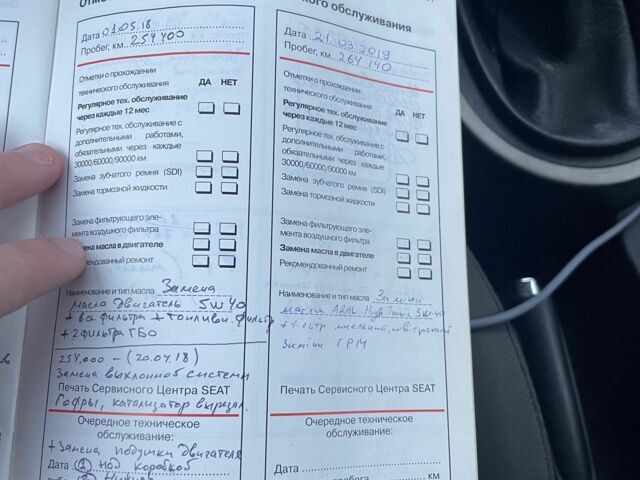 ского обслуживания
Дата 01.05.18
Пробег, км 254 400
Отметки о прохождении
технического обслуживания ДА НЕТ
Регулярное тех. обслуживание
через каждые 12 мес
Регулярное тех. обслуживание с
дополнительными работами,
обязательными через каждые
30000/60000/90000 км
Замена зубчатого ремня (SDI)
Замена тормозной жидкости
Замена фильтрующего эле-
мента воздушного фильтра
ена масла в двигателе
ендованный ремонт
Наименование и тип масла Замена
масло двигатель 5W40
+ все фильтра + топливн. фильтр
+ 2 фильтра ГБО
254.000 – (20.04.18)
Замена выхлопной системи
Печать Сервисного Центра SEAT
Гофры, катализатор вырезал.
Очередное техническое
обслуживание:
+ Замена подушки двигателя
Дата ① Над коробкой
②
Дата 21.03.2019
Пробег, км 264 140
Отметки о прохождении
технического обслуживания ДА НЕТ
Регулярное тех. обслуживание
через каждые 12 мес
Регулярное тех. обслуживание с
дополнительными работами,
обязательными через каждые
30000/60000/90000 км
Замена зубчатого ремня (SDI)
Замена тормозной жидкости
Замена фильтрующего эле-
мента воздушного фильтра
Замена масла в двигателе
Рекомендованный ремонт
Наименование и тип масла Заміна
масла 5W-40
Заміна ГРМ
Печать Сервисного Центра SEAT
Очередное техническое
обслуживание:
Дата
км